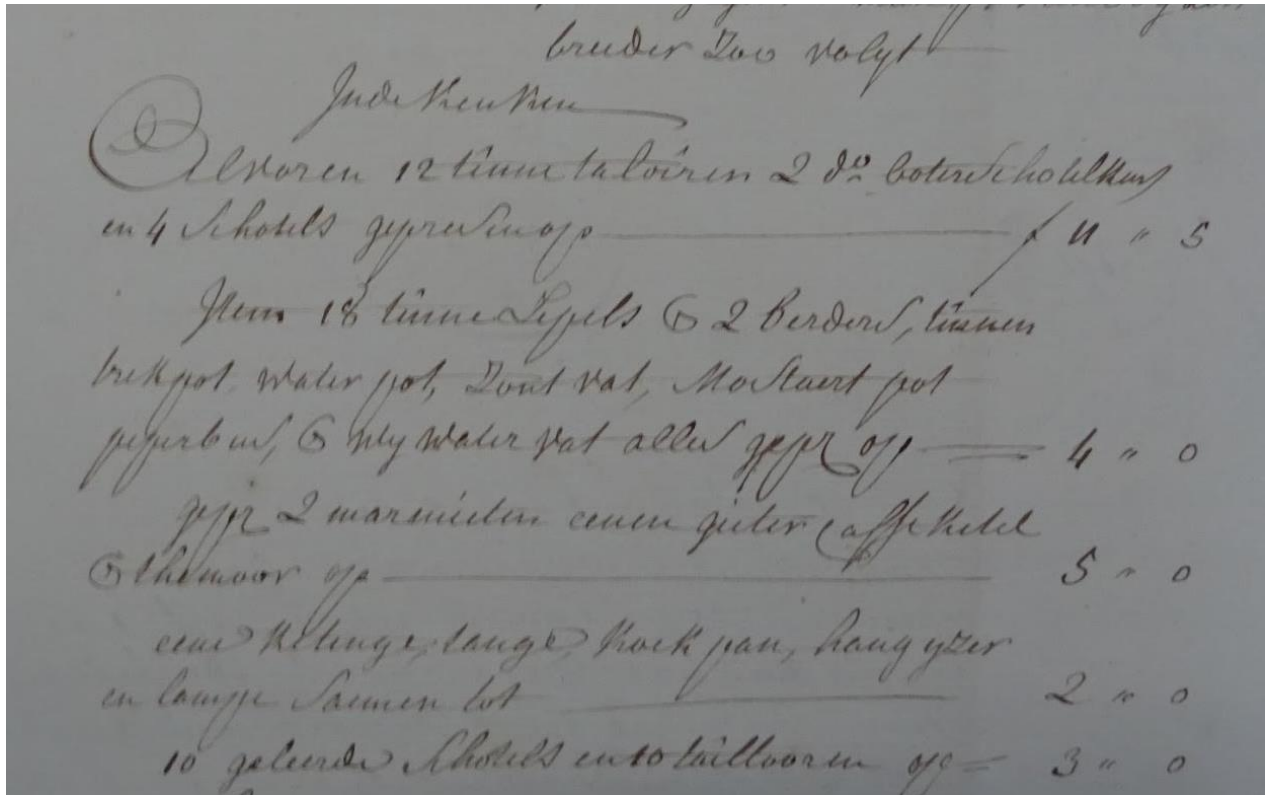 breeder zoo volgt
Inde Keuken
Alvoren 12 tinne taloiren 2 do boterschotelkens
en 4 schotels gepresen op f 11 " 5
Item 18 tinne Lepels & 2 berders, tinnen
trekpot, water pot, Zout vat, Mostaert pot
peperbus, & wywater vat alles gepr op 4 " 0
gepr 2 marmieten eenen gieter caffeketel
& themoor op 5 " 0
eene Ketinge, tange, Koekpan, hangyzer
en lampe saemen tot 2 " 0
10 geleerde schotels en 10 taillooren op = 3 " 0